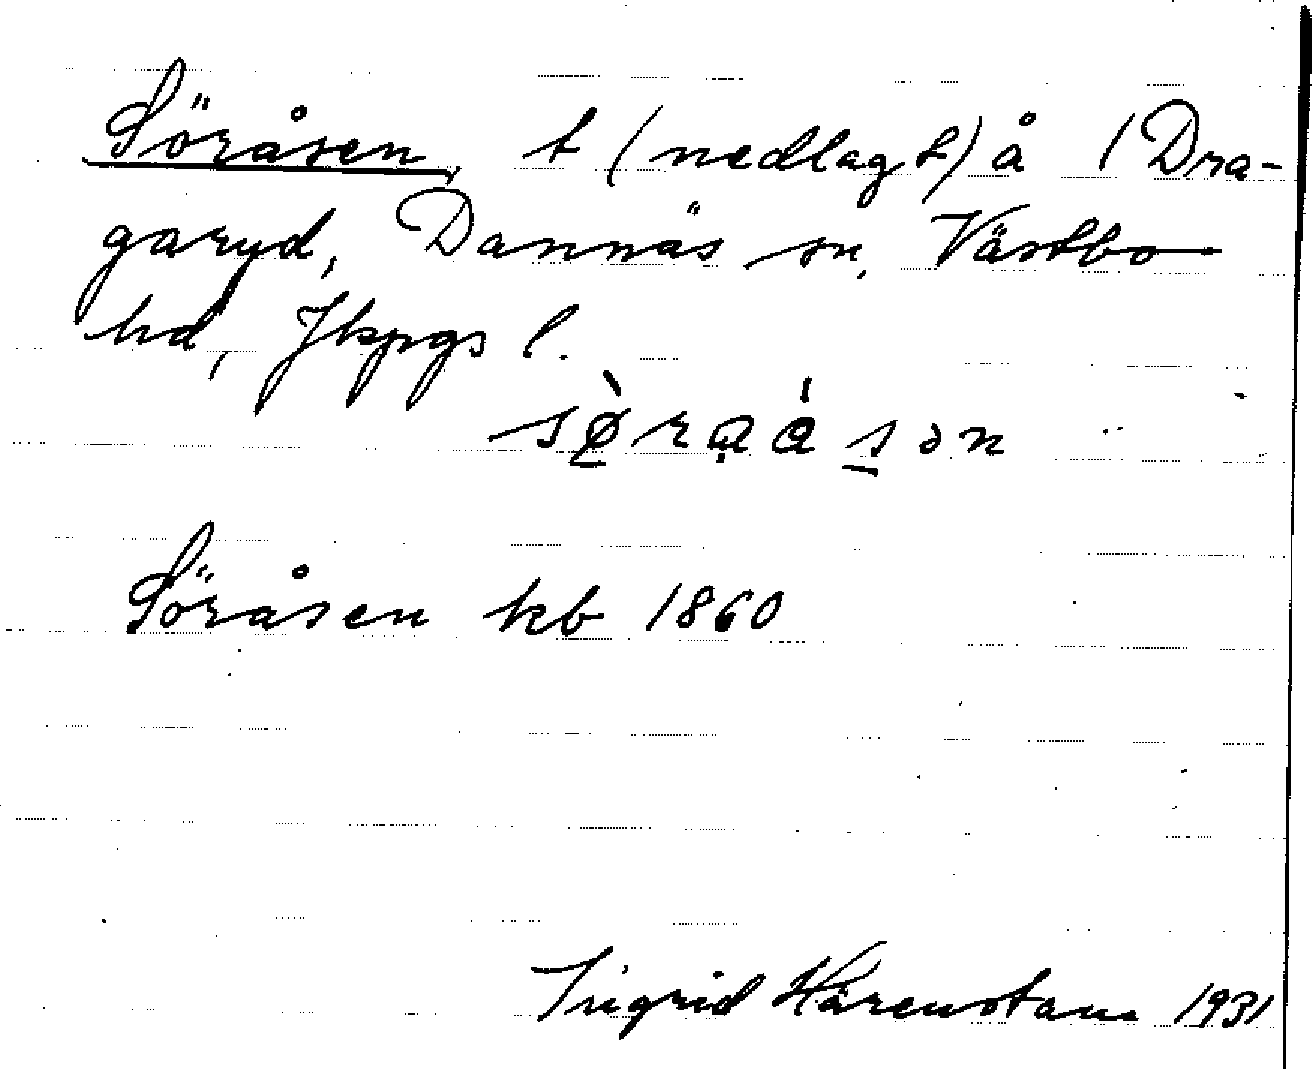 Söråsen, t (nedlagt) å / Dra-
garyd, Dannäs sn, Västbo
hd, Jkpgs l.
sø̀raásən
Söråsen kb 1860
Ingrid Härenstam 1931